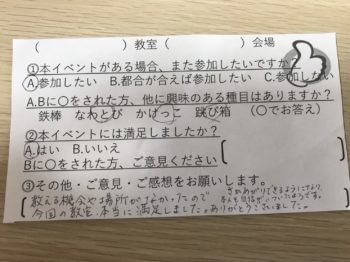 (　　　　　　)教室(　　　　　　)会場
①本イベントがある場合、また参加したいですか？
A.参加したい　B.都合が合えば参加したい　C.参加しない
A.Bに〇をされた方、他に興味のある種目はありますか？
鉄棒　なわとび　かけっこ　跳び箱　(〇でお答え)
②本イベントには満足しましたか？
A.はい　B.いいえ
Bに〇をされた方、ご意見ください
③その他・ご意見・ご感想をお願いします。
教える機会や場所がなかったので
今回の教室、本当に満足しました。ありがとうございました。
さかあがりできるようになり、
本人も自信がついたようです。